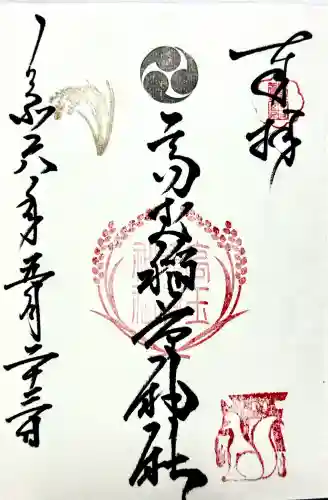 奉拝
高玉稲荷神社
令和六年五月二十三日